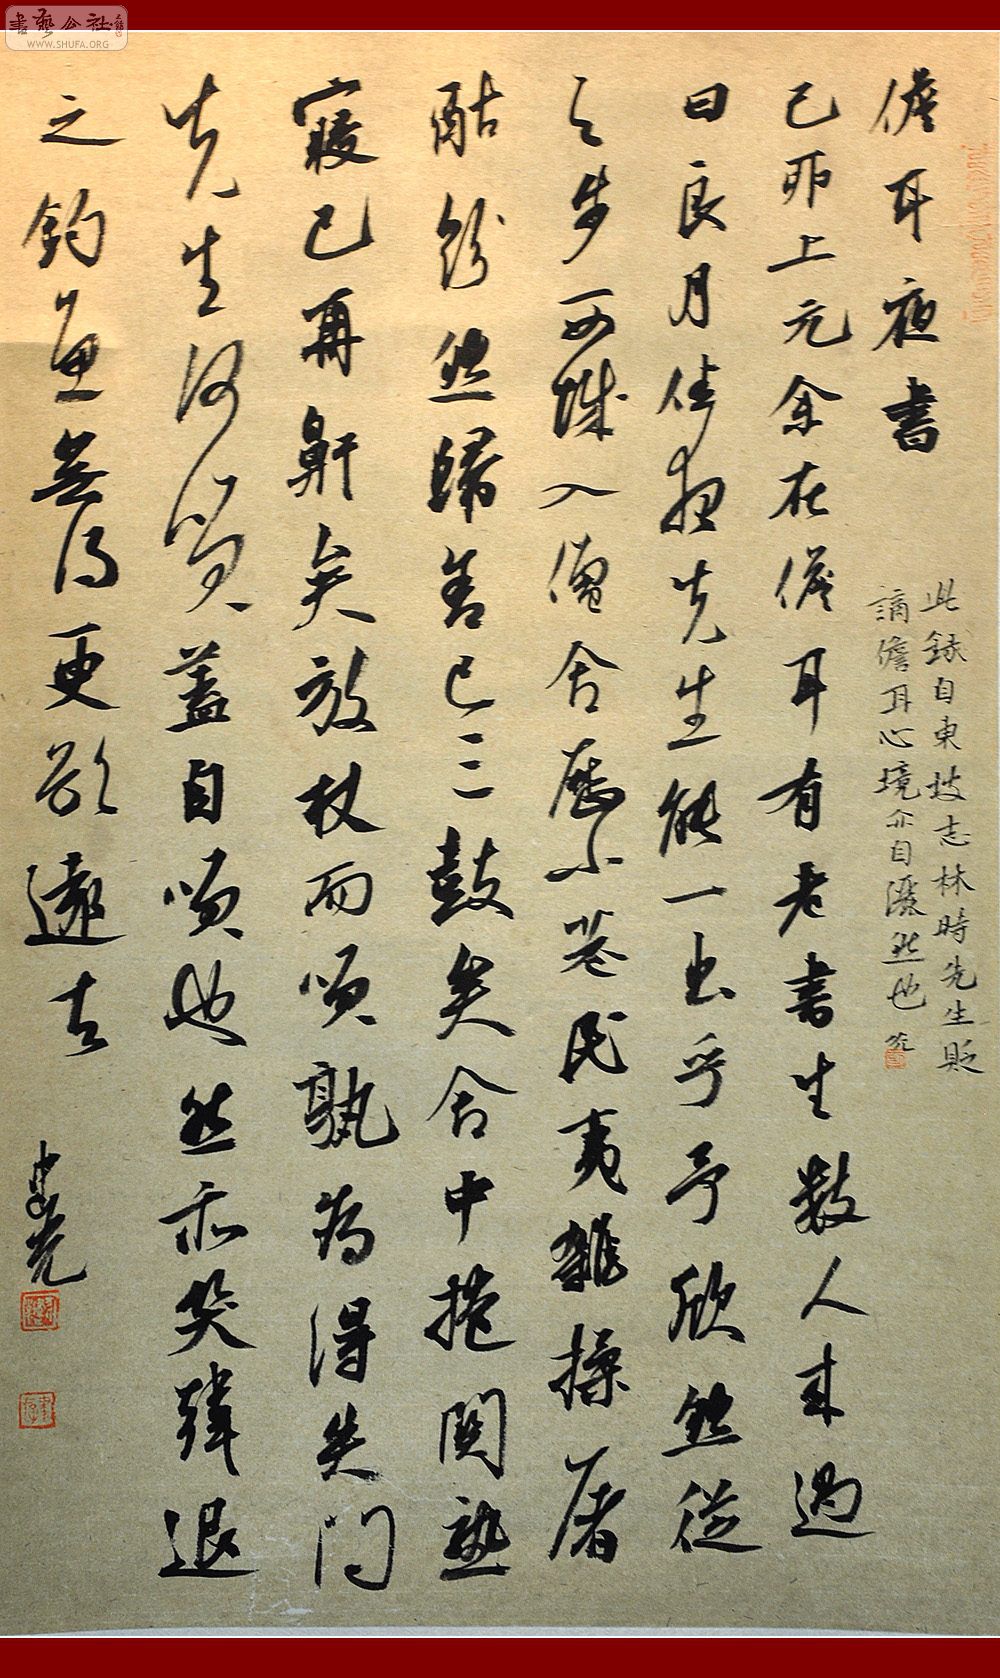 書藝公社
WWW.SHUFA.ORG
儋耳夜書
此錄自東坡志林時先生貶
謫儋耳心境亦自潇然也
己卯上元余在儋耳有老書生數人来過
曰良月佳夜先生能一出乎予欣然從
之步西城入僧舍歷小巷民夷雜揉屠
酤纷然歸舍已三鼓矣舍中掩関熟
寢已再鼾矣放杖而笑孰為得失門
先生何笑盖自笑也然亦笑韓退
之釣魚無得更欲遠去
建光